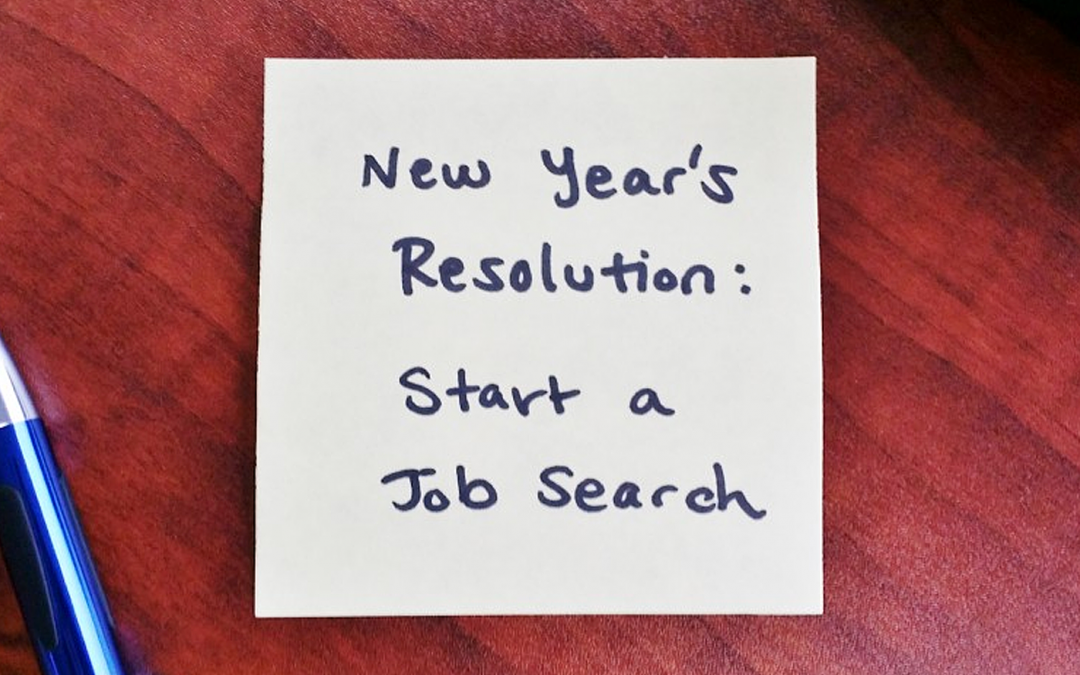 New Year's
Resolution:
Start a
Job Search